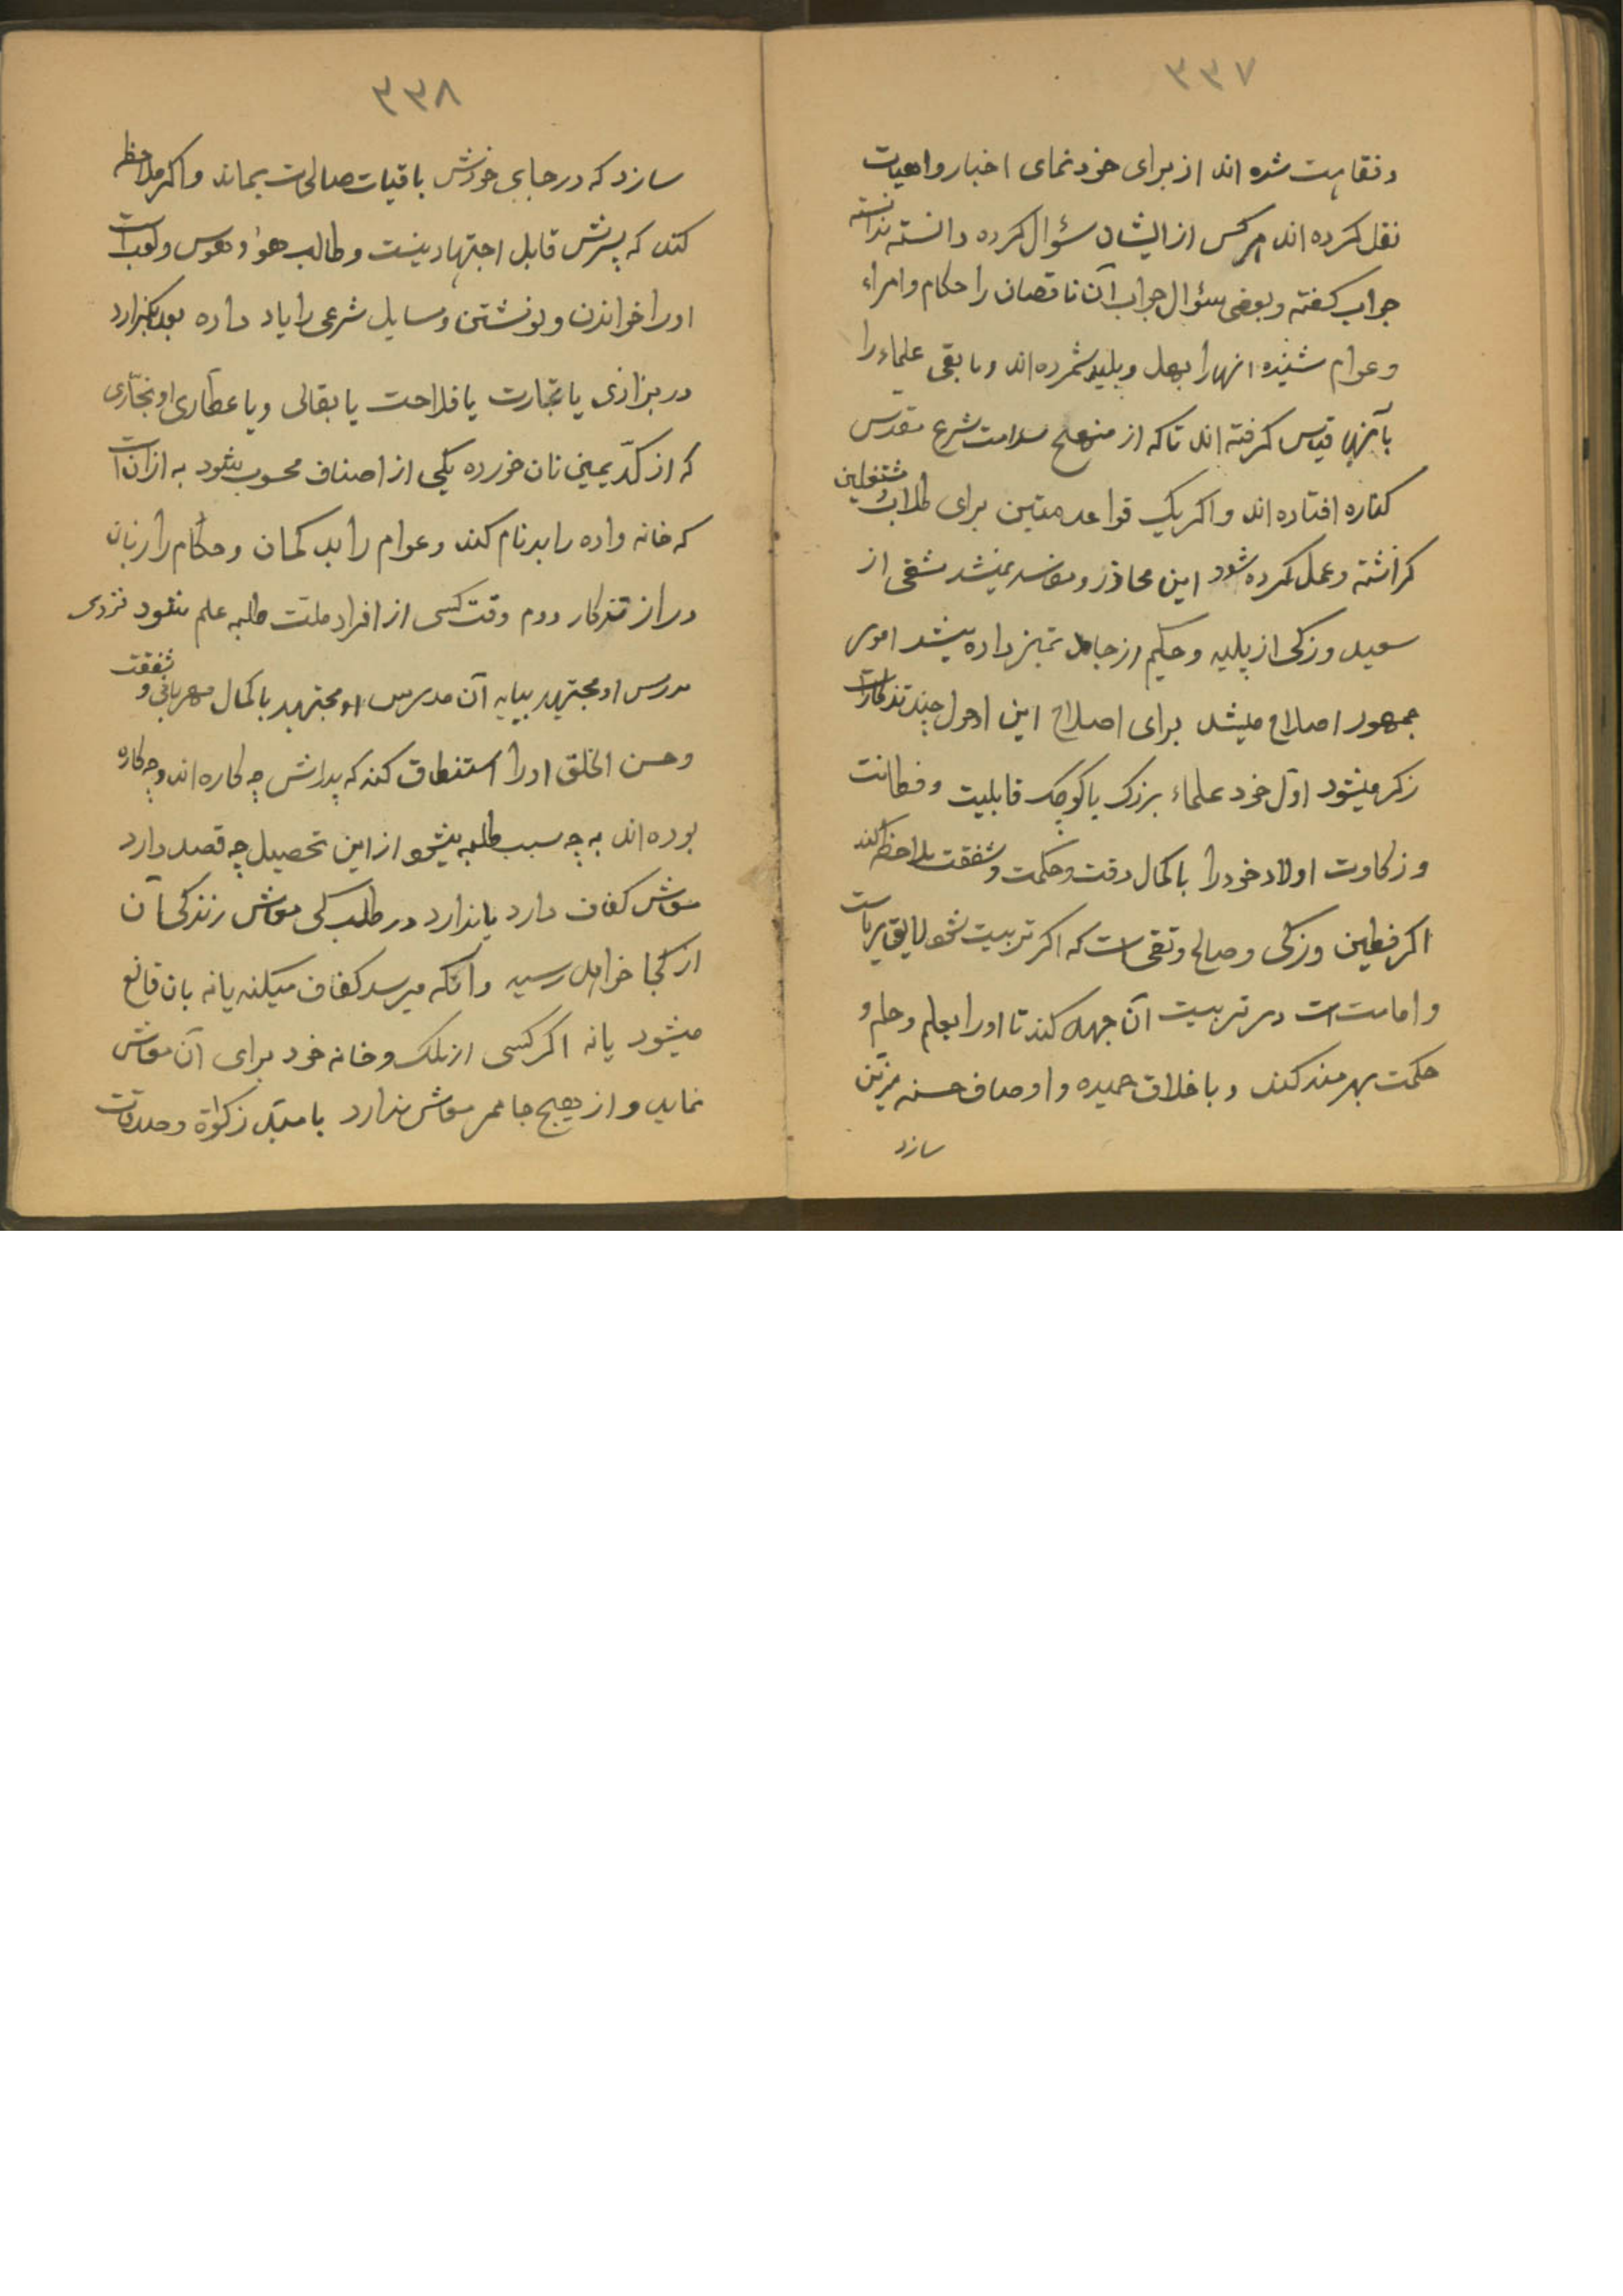 ۳۳۷
و فقاهت شده اند از برای خود نمای اخبار واهیات
نقل کرده اند هر کس از ایشان سؤال کرده دانسته ندانسته
جواب کفته و بعضی سؤال جواب آن ناقصان را حکام و امراء
و عوام شنیده انها را بجهل و بلید شمرده اند و ما بقی علماء را
بآنها قیاس کرفته اند تا که از منهج سلامت شرع مقدس
کناره افتاده اند و اکر یک قواعد متین برای طلاب و مشتغلین
کزاشته و عمل کرده شود این محاذر و مفاسد نمیشد شقی از
سعید و زکی از پلید و حکیم از جاهل تمیز داده میشد امور
جمهور اصلاح میشد برای اصلاح این احوال چند تذکارات
زکر میشود اوّل خود علماء بزرک یا کوچک قابلیت و فطانت
و زکاوت اولاد خود را با کمال دقت و حکمت و شفقت ملاحظه کند
اکر فطین و زکی و صالح و تقی است که اکر تربیت شود لایق ریاست
و امامت است در تربیت آن جهد کند تا او را بعلم و حلم و
حکمت بهرمند کند و باخلاق حمیده و اوصاف حسنه مزیّن
سازد
۳۳۸
سازد که در جای خودش باقیات صالحات بماند و اکر ملاحظه
کند که پسرش قابل اجتهاد نیست و طالب هوا و هوس و لعب است
او را خواندن و نوشتن و مسایل شرعی را یاد داده بعد بکزارد
در بزازی یا تجارت یا فلاحت یا بقالی و یا عطاری او نجّاری
که از کدّ یمین نان خورده یکی از اصناف محسوب شود به از آن است
که خانه واده را بدنام کند و عوام را بد کمان و حکام را زبان
دراز تذکار دوم وقت کسی از افراد ملت طلبه علم شود نزدی
مدرس او مجتهد بیاید آن مدرس او مجتهد با کمال مهربانی و شفقت
و حسن الخلق او را استنطاق کند که پدرانش چه کاره اند و چه کاره
بوده اند به چه سبب طلبه میشود از این تحصیل چه قصد دارد
معاش کفاف دارد یا ندارد در طلب کی معاش زندکی آن
از کجا خواهد رسید و آنکه میرسد کفاف میکند یا نه بان قانع
میشود یا نه اکر کسی از ملک و خانه خود برای آن معاش
نماید و از هیچ جا ممر معاش ندارد با مثل زکواة و صدقات